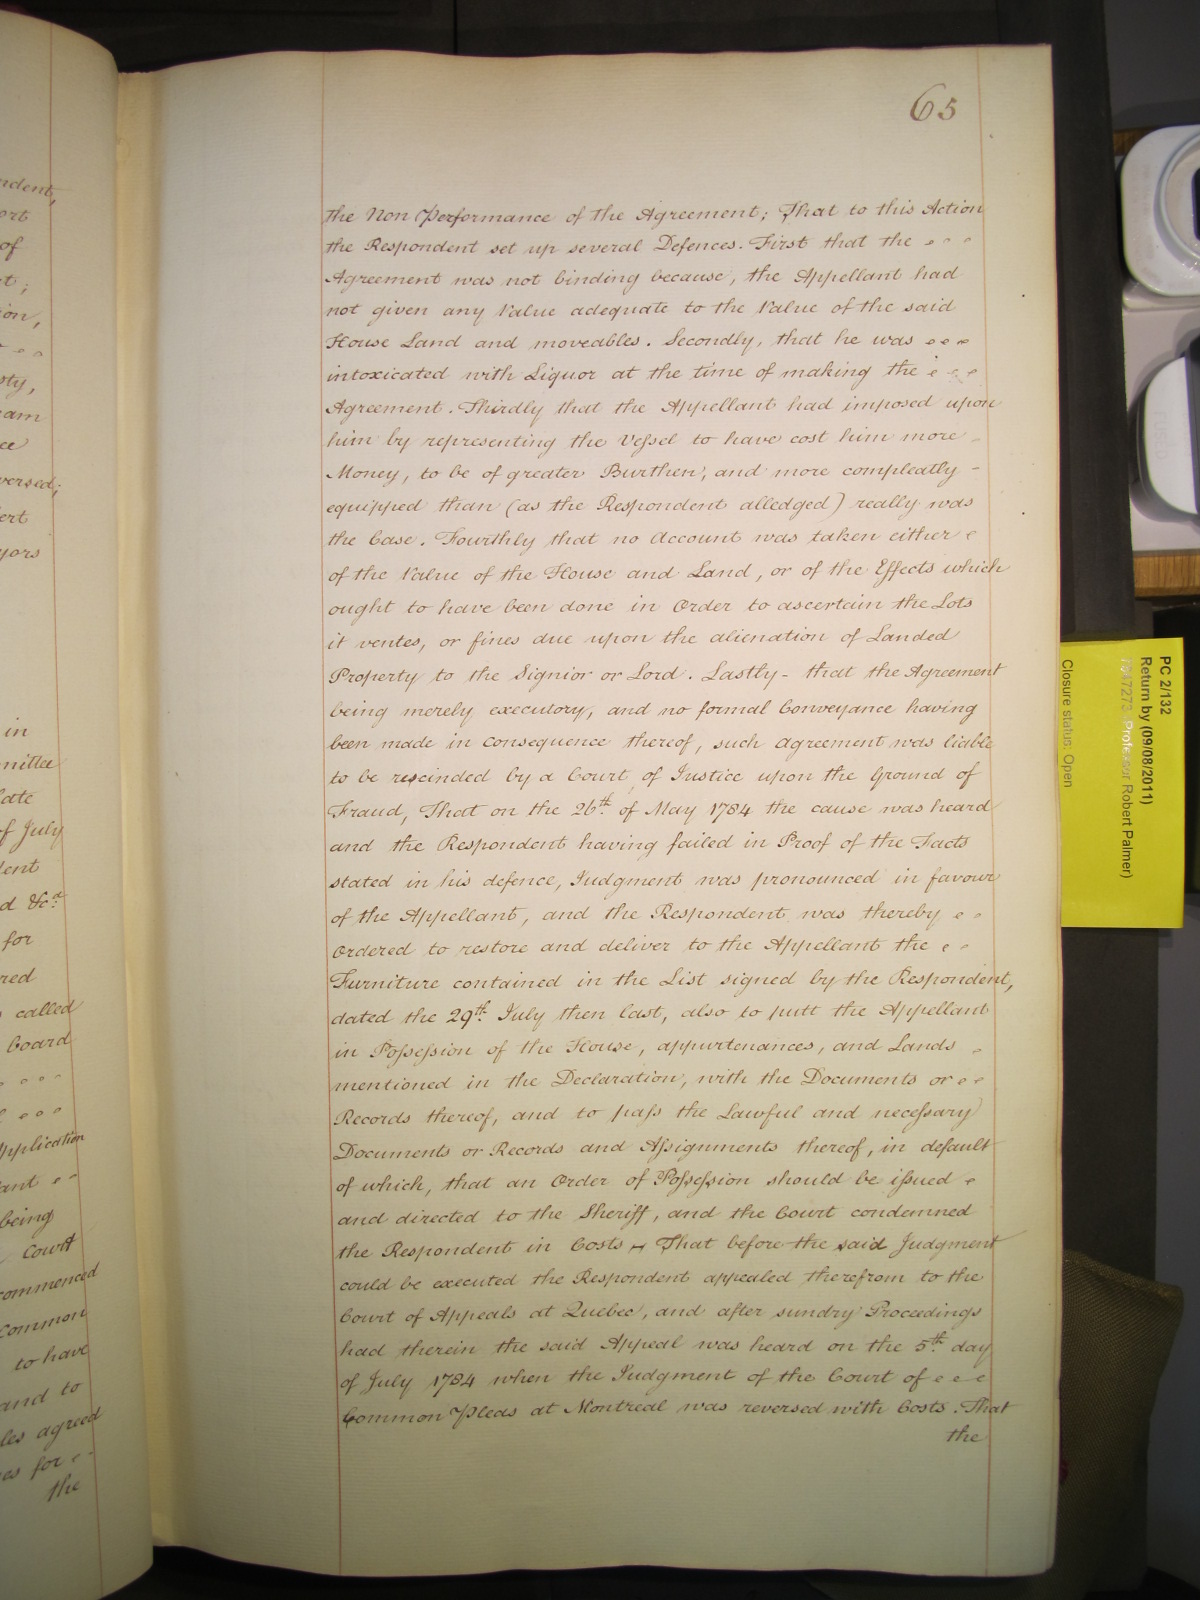 65
the Non Performance of the Agreement; That to this Action
the Respondent set up several Defences. First that the
Agreement was not binding because, the Appellant had
not given any Value adequate to the Value of the said
House Land and moveables. Secondly, that he was
intoxicated with Liquor at the time of making the
Agreement. Thirdly that the Appellant had imposed upon
him by representing the Vessel to have cost him more
Money, to be of greater Burthen, and more compleatly -
equipped than (as the Respondent alledged) really was
the Case. Fourthly that no Account was taken either
of the Value of the House and Land, or of the Effects which
ought to have been done in Order to ascertain the Lots
it ventes, or fines due upon the alienation of Landed
Property to the Signior or Lord. Lastly - that the Agreement
being merely executory, and no formal Conveyance having
been made in consequence thereof, such agreement was liable
to be rescinded by a Court of Justice upon the Ground of
Fraud, That on the 26th. of May 1784 the cause was heard
and the Respondent having failed in Proof of the Facts
stated in his defence, Judgment was pronounced in favour
of the Appellant, and the Respondent was thereby
Ordered to restore and deliver to the Appellant the
Furniture contained in the List signed by the Respondent,
dated the 29th. July then last, also to putt the Appellant
in Possession of the House, appurtenances, and Lands
mentioned in the Declaration, with the Documents or
Records thereof, and to pass the Lawful and necessary
Documents or Records and Assignments thereof, in default
of which, that an Order of Possession should be issued
and directed to the Sheriff, and the Court condemned
the Respondent in Costs - That before the said Judgment
could be executed the Respondent appealed therefrom to the
Court of Appeals at Quebec, and after sundry Proceedings
had therein the said Appeal was heard on the 5th. day
of July 1784 when the Judgment of the Court of
Common Pleas at Montreal was reversed with Costs. That
the
in
of July
for
called
board
being
Court
Common
to have
and to
agreed
for
the
PC 2/132
Return by (09/08/2011)
Professor Robert Palmer)
Closure status: Open